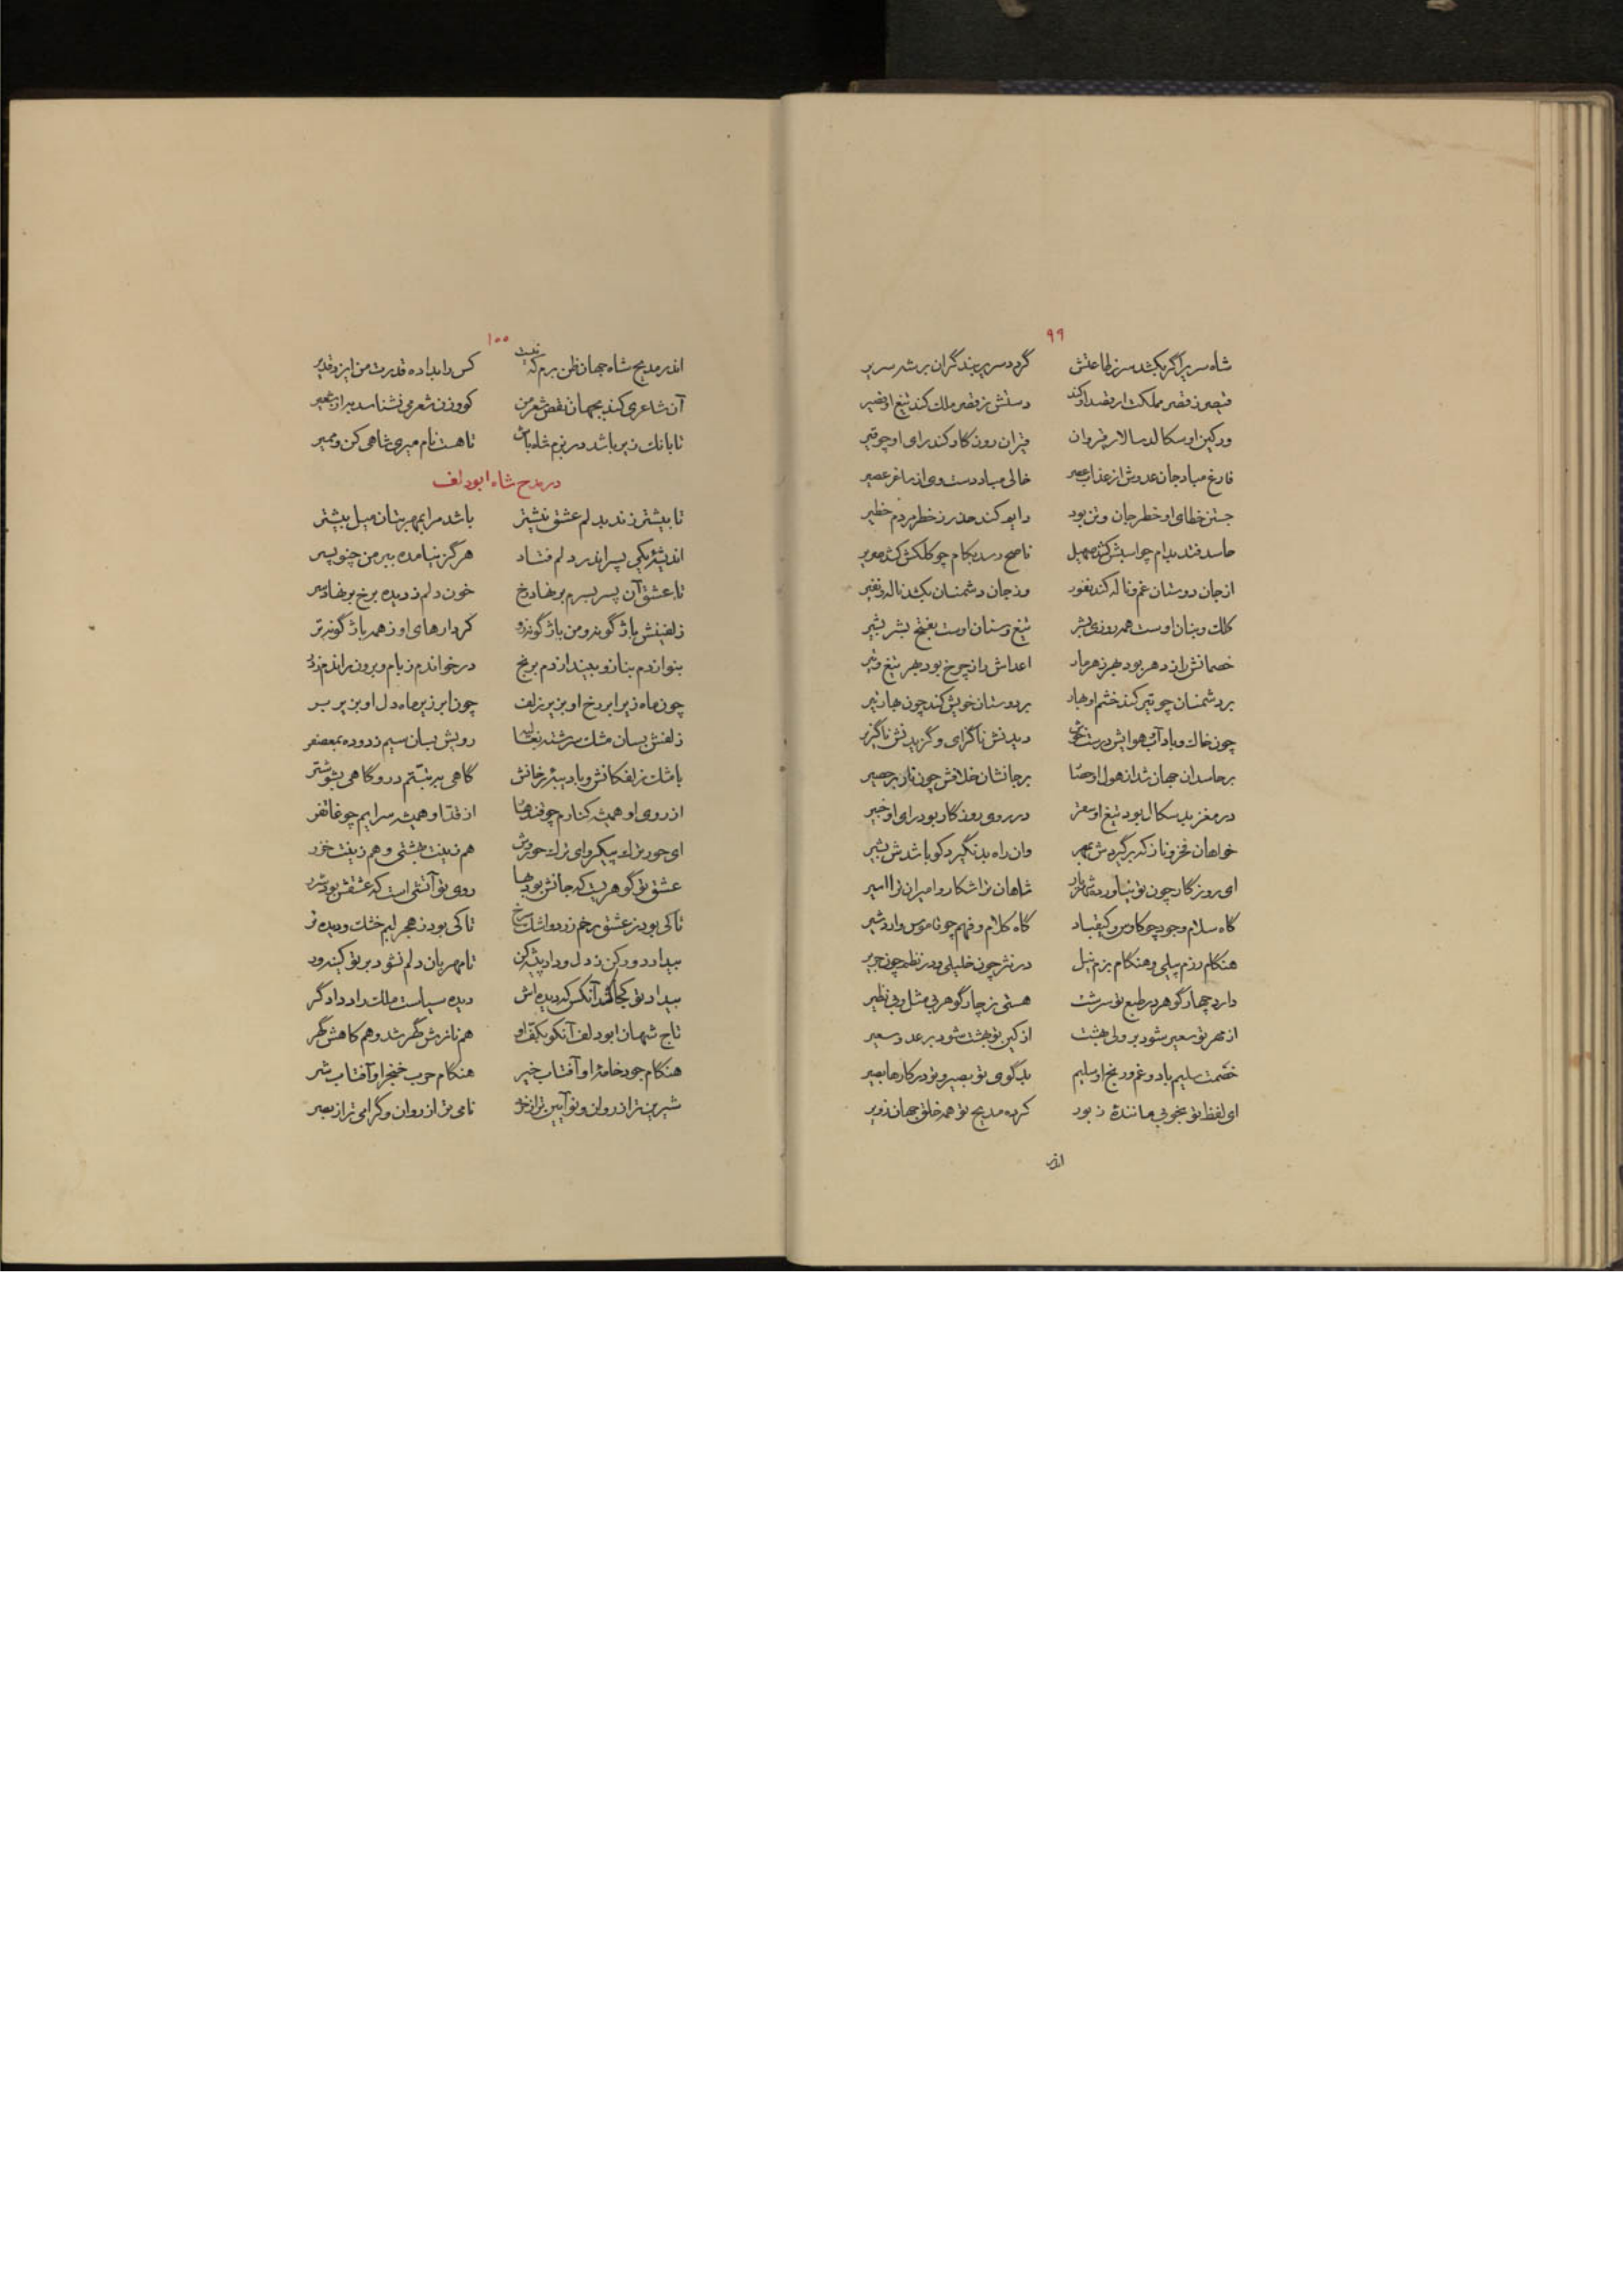 ۹۹
شاه سریر اگر بکشد سر ز طاعتش گردد سریر بند گران بر شه سریر
قیصر ز قصر مملکت ار قصد او کند دستش ز قصر ملک کند تیغ او قصیر
ور کین او سکالد سالار قیروان قیران روزگار کند رای او چو قیر
فارغ مباد جان عدوش از عذاب عصر خالی مباد دست وی از ساغر عصیر
جستن خطای او خطر جان و تن بود دایم کند حذر ز خطر مردم خطیر
حاسد فتد بدام چو اسبش کند صهیل ناصح رسد بکام چو کلکش کند صریر
از جان دوستان غم و ناله کند نفور وز جان دشمنان بکشد ناله و نفیر
کلک و بنان اوست همه روزی بشر تیغ و سنان اوست بفتح و بشر بشیر
خصمانش را ز دهر بود بهر زهر مار اعداش را ز چرخ بود بهر تیغ و تیر
بر دشمنان چو تیر کند خشم او بهار بر دوستان خویش کند چون بهار تیر
چون خاک و باد و آب هوایش درست دیدنش ناگزای و گزیدنش ناگزیر
بر حاسدان جهان شد از هول او بر جانشان خلافش چون نار بر حصیر
در مغز بد سکال بود تیغ او در روی روزگار بود رای او خبیر
خواهان فخر و ناز که برگیردش بمهر وان راه بد نگیرد کو باشدش بشیر
ای روزگار چون تو نیاورده شهریار شاهان ترا شکار و امیران ترا اسیر
گاه سلام و جود چو کاوس و کیقباد گاه کلام و فهم چو قاموس و اردشیر
هنگام رزم پیلی و هنگام بزم نیل در نثر چون خلیلی و در نظم چون جریر
دارد چهار گوهر در طبع تو سرشت هستی ز چار گوهر بی مثل و بی نظیر
از مهر تو سعیر شود بر ولی بهشت از کین تو بهشت شود بر عدو سعیر
خصمت سلیم باد و غم و رنج او سلیم بدگوی تو بصیر و تو در کارها بصیر
ای لفظ تو بخوبی مانندهٔ زبور کرده مدیح تو همه خلق جهان ز بر
اندر
۱۰۰
اندر مدیح شاه جهان ظن برم که نیست کس را بداده قدرت من ایزد قدیر
آن شاعری کند بجهان نقض شعر من کو وزن شعر می نشناسد پیر از شعیر
تا بانک زیر باشد در بزم شاه باش تا هست نام میری شاهی کن و ممیر
در مدح شاه ابودلف
تا بیشتر زند بدلم عشق نیشتر باشد مرا بمهر بتان میل بیشتر
اندیشهٔ یکی پسر اندر دلم فتاد هرگز نیامده ببر من چنو پسر
تا عشق آن پسر بسرم بر نهاد رخ خون دلم ز دیده برخ بر نهاد سر
زلفینش باژگونه و من باژگونه‌رو کردارهای او ز همه باژگونه‌تر
بنوازدم بناز و بیندازدم برنج درخواندم ز بام و برون راندم ز در
چون ماه زیر ابر رخ او بزیر زلف چون ابر زیر ماه دل او بزیر بر
زلفش بسان مشک سرشته رویش بسان سیم زدوده بمعصفر
با مشک زلفکانش و با دیبه رخانش گاهی به تبتم در و گاهی بشوشتر
از روی او همیشه کنارم چو قندهار از قد او همیشه سرایم چو غاتفر
ای حور ترک پیکر و ای ترک حوروش هم زینت بهشتی و هم زینت خزر
عشق تو گوهریست که جانش بود بها روی تو آتشی است که عشقش بود شرر
تا کی بود ز عشق رخم زرد و اشک سرخ تا کی بود ز هجر لبم خشک و دیده تر
بیداد دور کن ز دل و داد پیشه کن تا مهربان دلم نشود بر تو کینه‌ور
بیداد تو کجا کشد آنکس که دیده‌اش دیده سیاست ملک راد دادگر
تاج شهان ابودلف آنکو بکف او هم نازش گهر شد و هم کاهش گهر
هنگام جود خامهٔ او آفتاب خیر هنگام حرب خنجر او آفتاب شر
شیرین‌تر از روان و نو آیین‌تر از خرد نامی‌تر از روان و گرامی‌تر از بصر